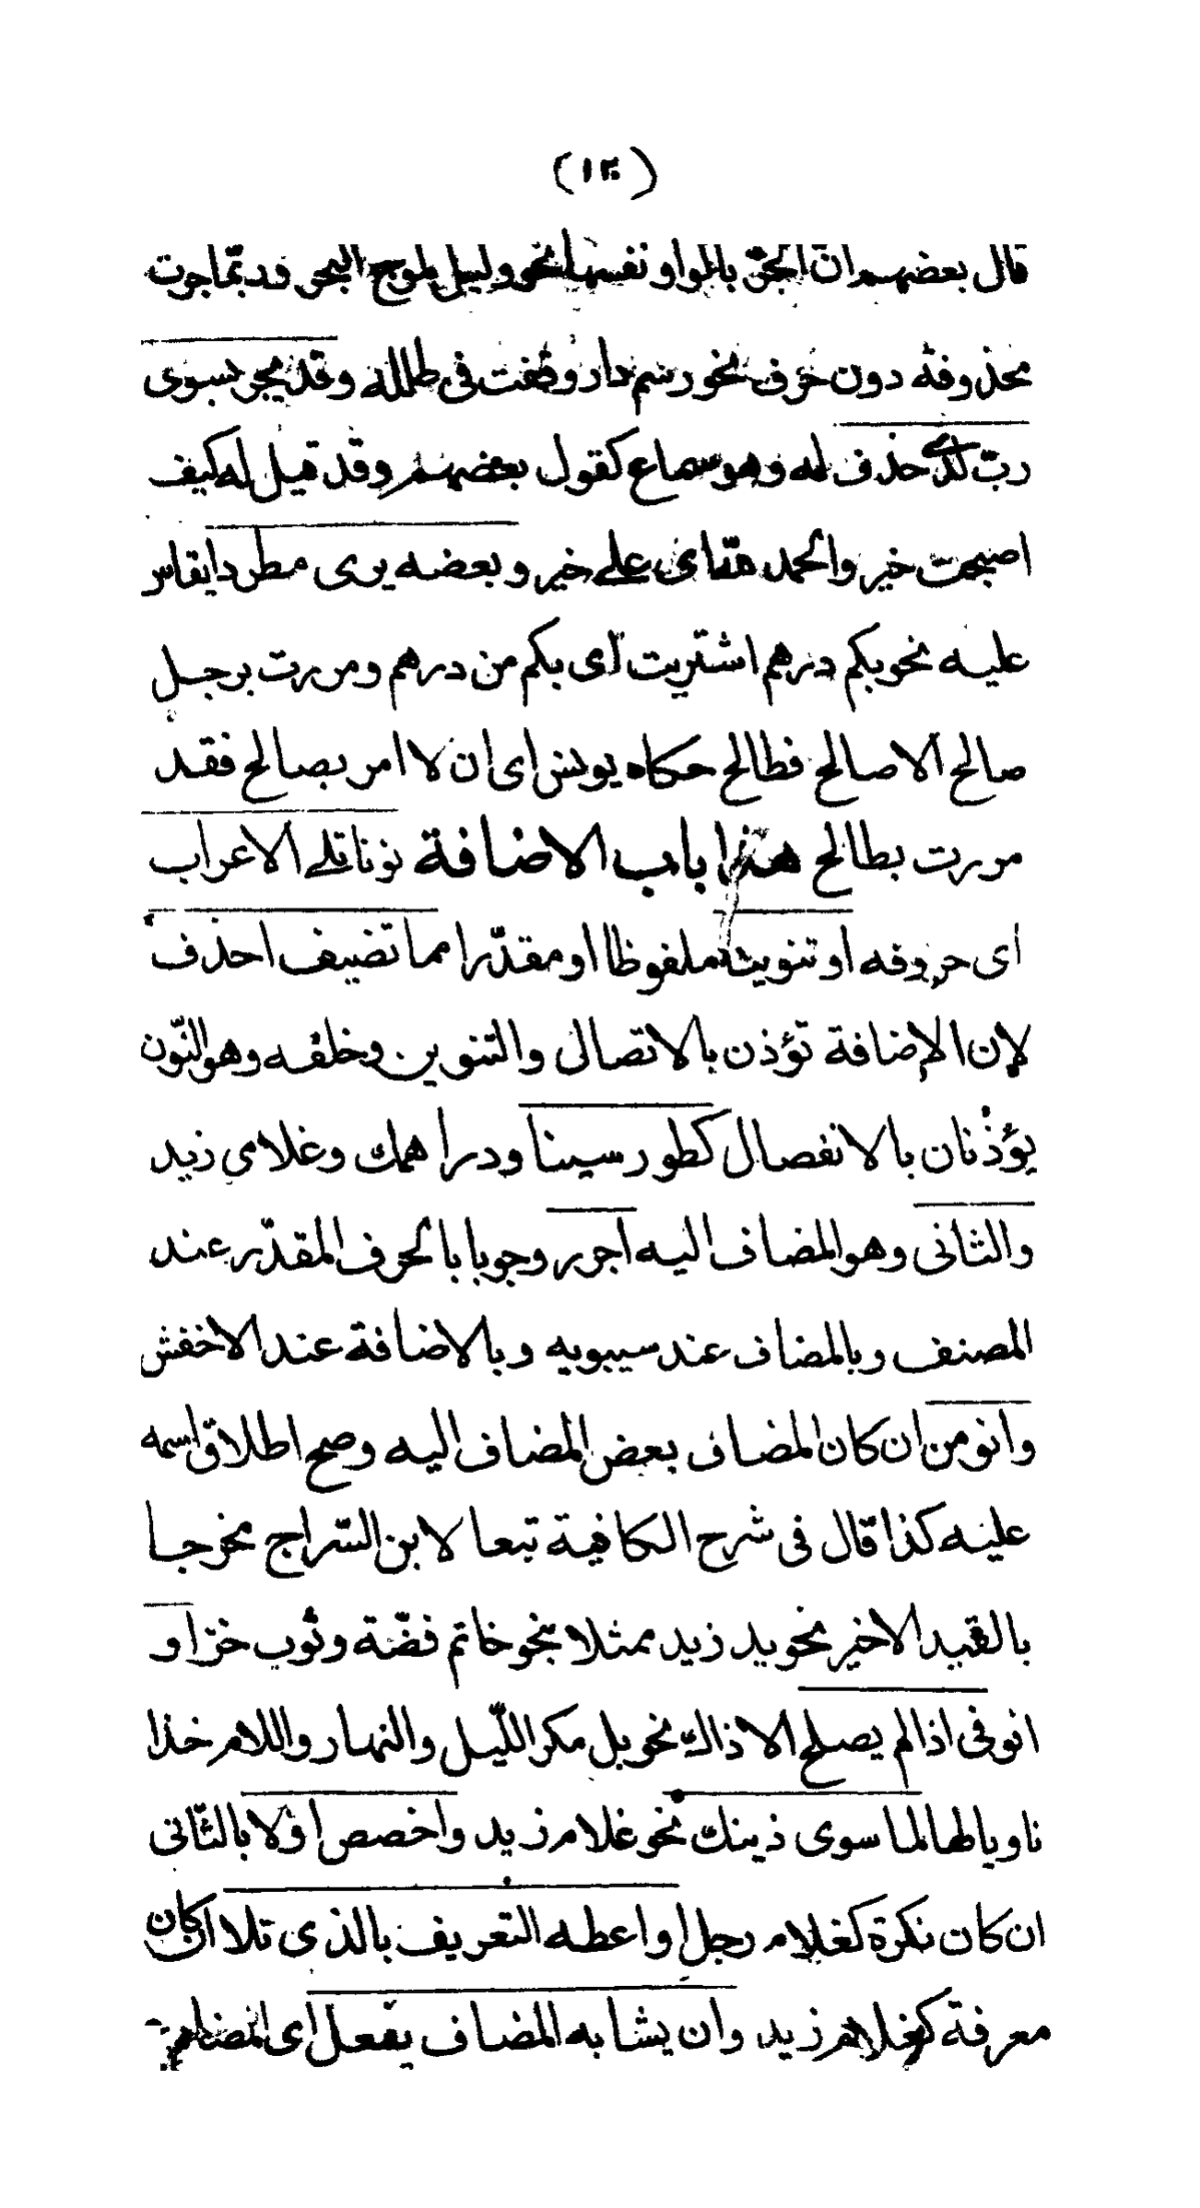 (١٣٠)
قال بعضهم ان الجرّ بالواو نفسها نحو وليل كموج البحر وربّما جرت
محذوفة دون حرف نحو رسم دار وقفت فى طلله وقد يجر بسوى
ربّ لدى حذف له وهو سماع كقول بعضهم وقد قيل له كيف
اصبحت خير والحمد لله اى على خير وبعضه يرى مطردا يقاس
عليه نحو بكم درهم اشتريت اى بكم من درهم ومررت برجل
صالح الا صالح فطالح حكاه يونس اى ان لا امر بصالح فقد
مررت بطالح هذا باب الاضافة نونا تلى الاعراب
اى حروفه او تنوينا ملفوظا او مقدّرا مما تضيف احذف
لان الاضافة تؤذن بالاتصال والتنوين وخلفه وهو النّون
يؤذنان بالانفصال كطور سينا ودراهمك وغلامى زيد
والثانى وهو المضاف اليه اجرر وجوبا بالحرف المقدّر عند
المصنف وبالمضاف عند سيبويه وبالاضافة عند الاخفش
وانو من ان كان المضاف بعض المضاف اليه وصح اطلاق اسمه
عليه كذا قال فى شرح الكافية تبعا لابن السّراج مخرجا
بالقيد الاخير نحو يد زيد ممثلا بنحو خاتم فضّة وثوب خزّ او
انو فى اذا لم يصلح الا ذاك نحو بل مكر اللّيل والنهار واللام خذا
ناويا لها لما سوى ذينك نحو غلام زيد واخصص اوّلا بالثّانى
ان كان نكرة كغلام رجل او اعطه التعريف بالذى تلا ان كان
معرفة كغلام زيد وان يشابه المضاف يفعل اى المضارع